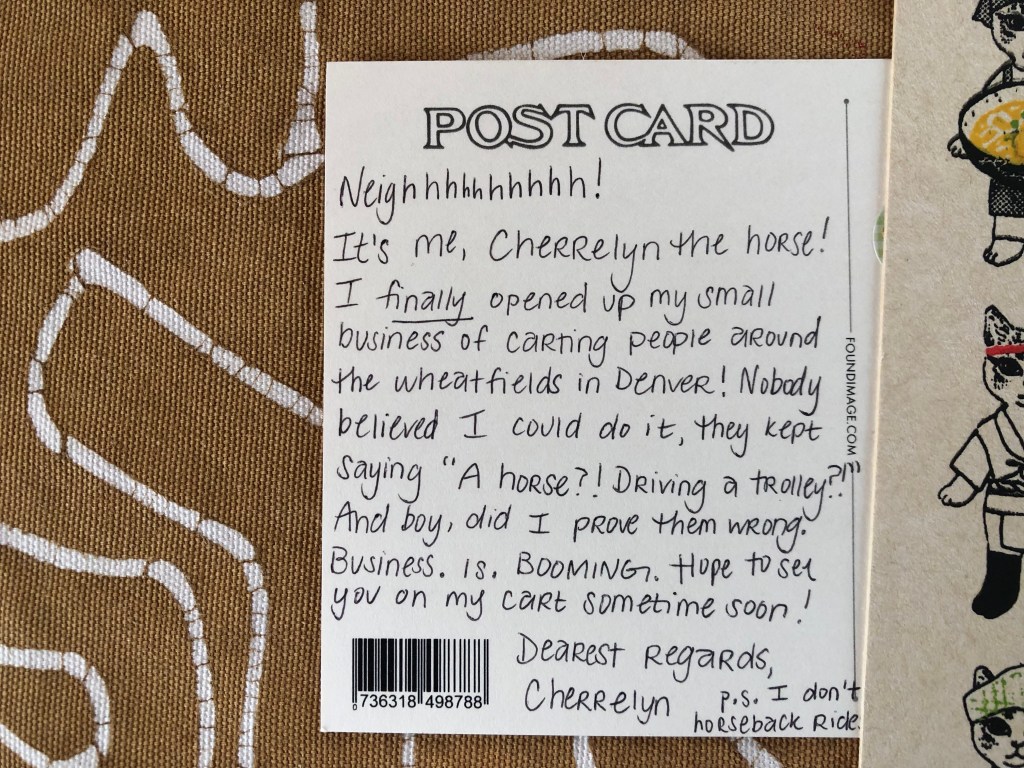 POST CARD
Neighhhhhhhhhh!
It's me, Cherrelyn the horse!
I finally opened up my small
business of carting people around
the wheatfields in Denver! Nobody
believed I could do it, they kept
saying "A horse?! Driving a trolley?!"
And boy, did I prove them wrong.
Business. Is. BOOMING. Hope to see
you on my cart sometime soon!
Dearest Regards,
Cherrelyn
p.s. I don't
horseback ride.
FOUNDIMAGE.COM
0 736318 498788